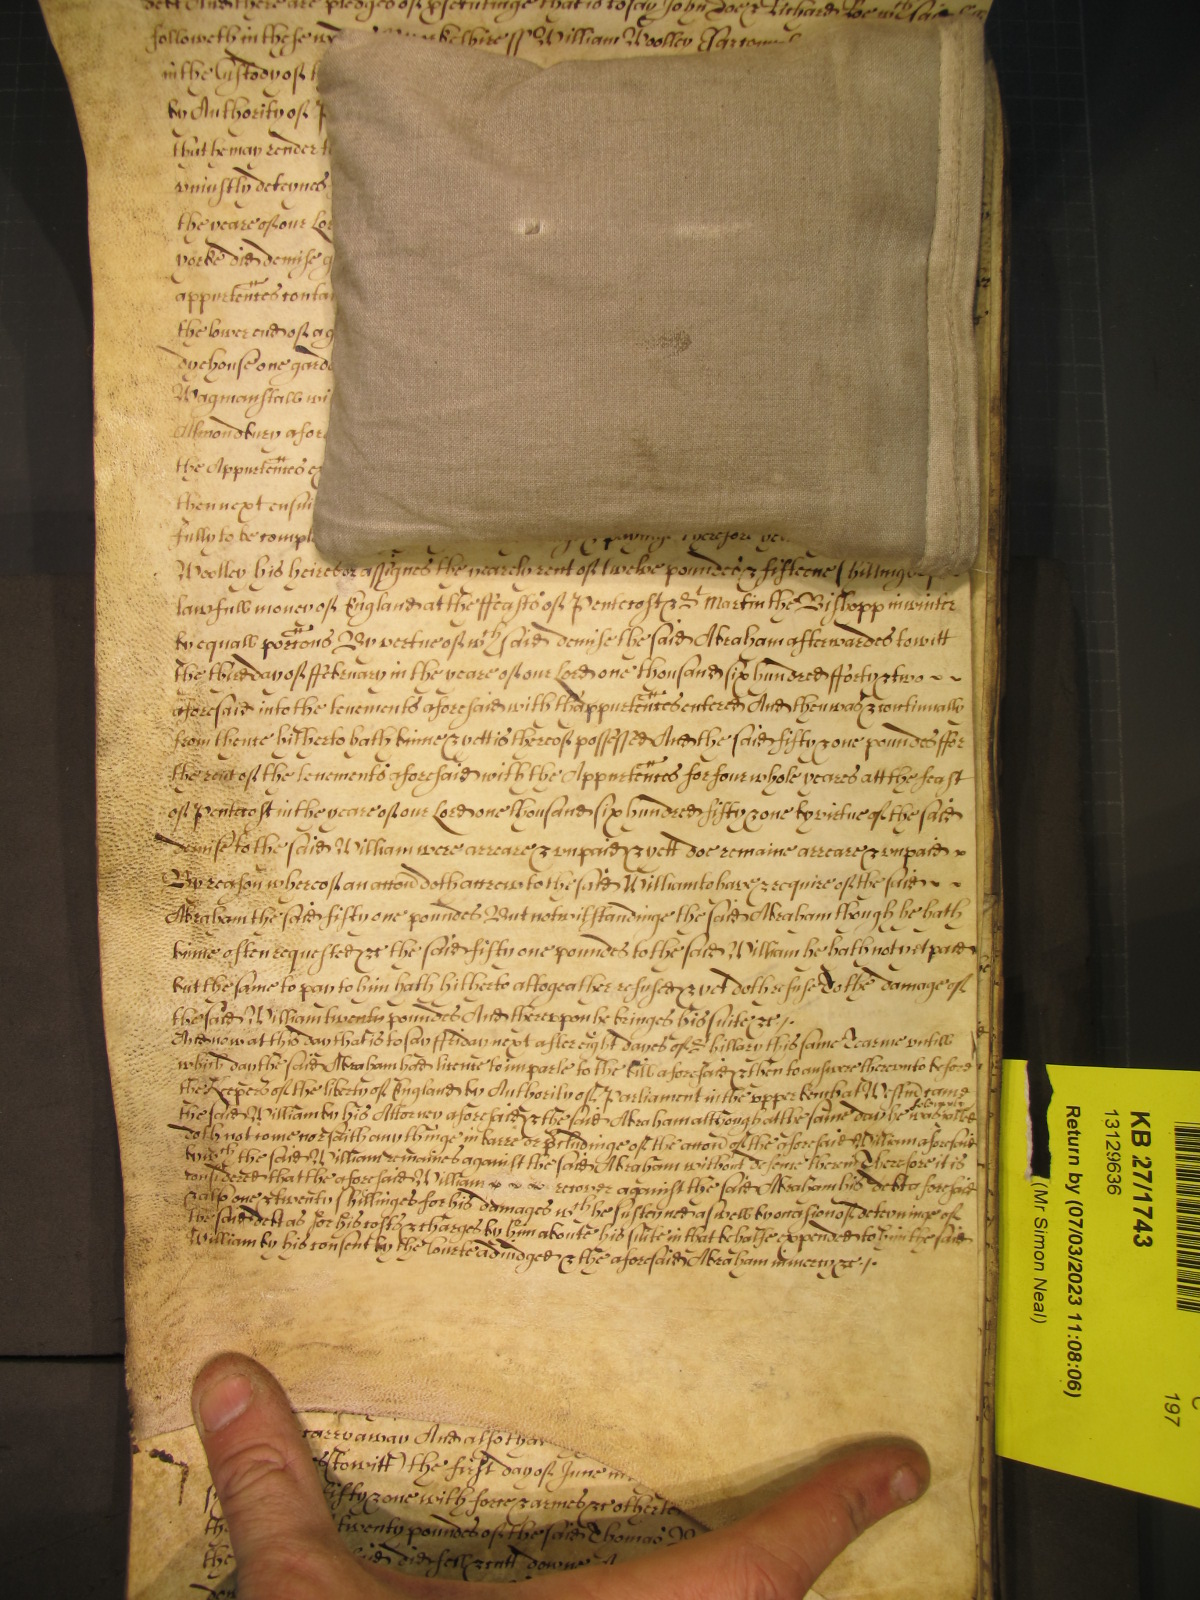 debt And there are pledges of prosecutinge that is to say John Doe & Richard Roe wch said
followeth in these Yorkeshire ss William Woolley
in the Custody of
by Authority of
that he may render
uniustly deteynes
the yeare of our Lor
Yorke did demise
appurtences contai
the lower end of a
dyehouse one gard
Wagmanstall wi
Almondbury afor
the Appurtences
then next ensui
fully to be compl paying therefore
Woolley his heires or assignes the yearely rent of twelve poundes & fifteene shillinges
lawfull money of England at the ffeasts of Pentecost & St Martin the Bishopp in winter
by equall portons By vertue of wch said demise the said Abraham afterwardes to witt
the third day of ffebruary in the yeare of our Lord one thousand six hundred fforty & two
aforesaid into the tenements aforesaid with thappurtences entered And then was & continually
from thence hitherto hath binne & yett is thereof possessed And the said fifty & one poundes ffor
the rent of the tenements aforesaid with the Appurtences for four whole yeares att the feast
of Pentecost in the yeare of our Lord one thousand six hundred fifty & one by virtue of the said
demise to the said William were arreare & unpaid & yett doe remaine arreare & unpaid
By reason whereof an accon doth accrew to the said William to have & require of the said
Abraham the said fifty one poundes But notwithstandinge the said Abraham though he hath
binne often requested &c the said fifty one poundes to the said William he hath not yet paid
but the same to pay to him hath hitherto altogeather refused & yet doth refuse To the damage of
the said William twenty poundes And thereupon he bringes his suite &c
And now at this day that is to say ffriday next after eight dayes of St hillary this same Tearme untill
which day the said Abraham had licence to imparle to the bill aforesaid & then to answere thereunto before
the Keepers of the liberty of England by Authority of Parliament in the upper bench at Westm came
the said William by his Attorney aforesaid & the said Abraham although at the same day he was solemnly called
doth not come nor saith any thinge in barre or precludinge of the accon of the aforesaid William aforesaid
by wch the said William remaines against the said Abraham without defence therein Therefore it is
considered that the aforesaid William recover against the said Abraham his debt aforesaid
& also one & twenty shillinges for his damages wch he susteined aswell by occasion of deteyninge of
the said debt as for his costs & charges by him aboute his suite in that behalfe expended to him the said
William by his consent by the Courte adiudged & the aforesaid Abraham in mercy &c
carry away And also that
(to witt) the first day of June in
fifty & one with force & armes &c other
the twenty poundes of the said Thomas
the said did fell & cutt downe
KB 27/1743
13129636
Return by (07/03/2023 11:08:06)
(Mr Simon Neal)
197